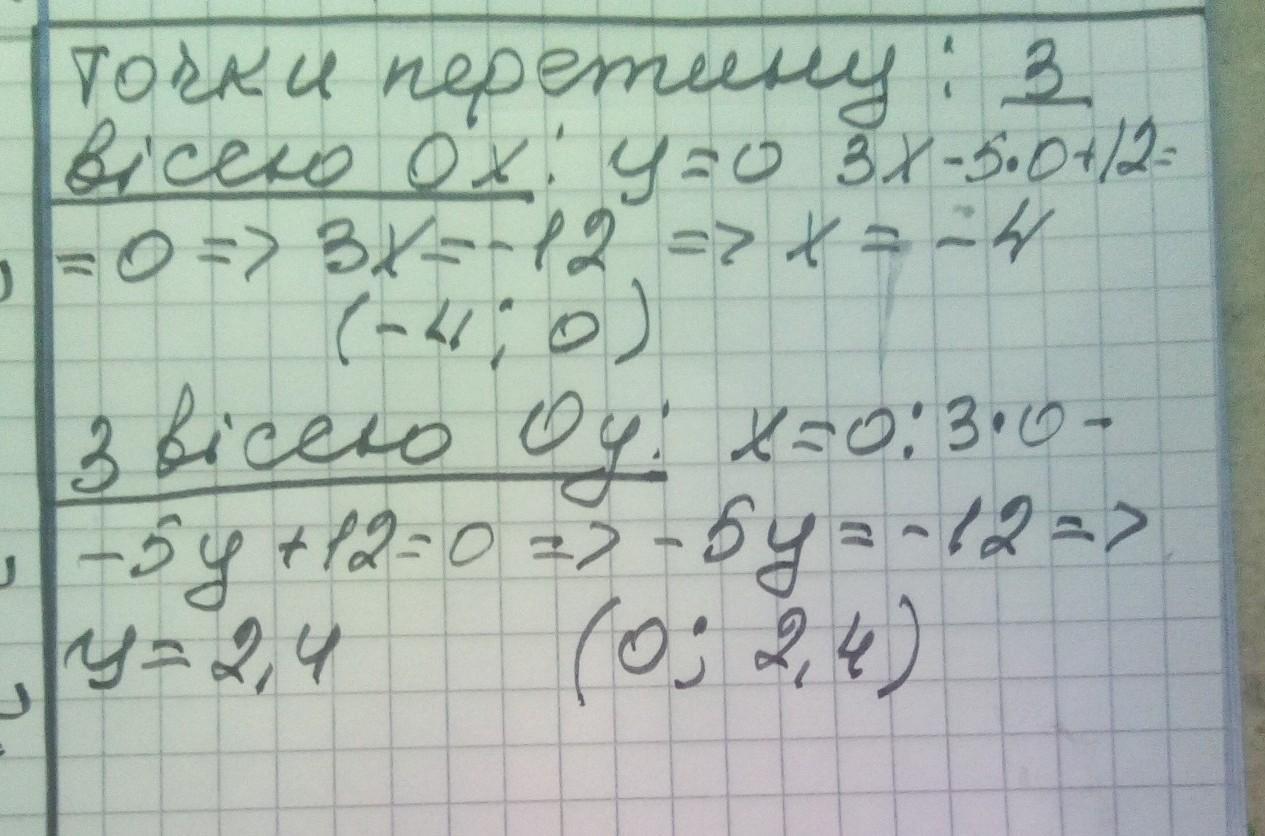 Точки перетину: З
вісею Ox: y=0 3x-5·0+12=
=0 => 3x=-12 => x = -4
(-4; 0)
З вісею Oy: x=0: 3·0 -
-5y +12=0 => -5y = -12 =>
y = 2,4 (0; 2,4)